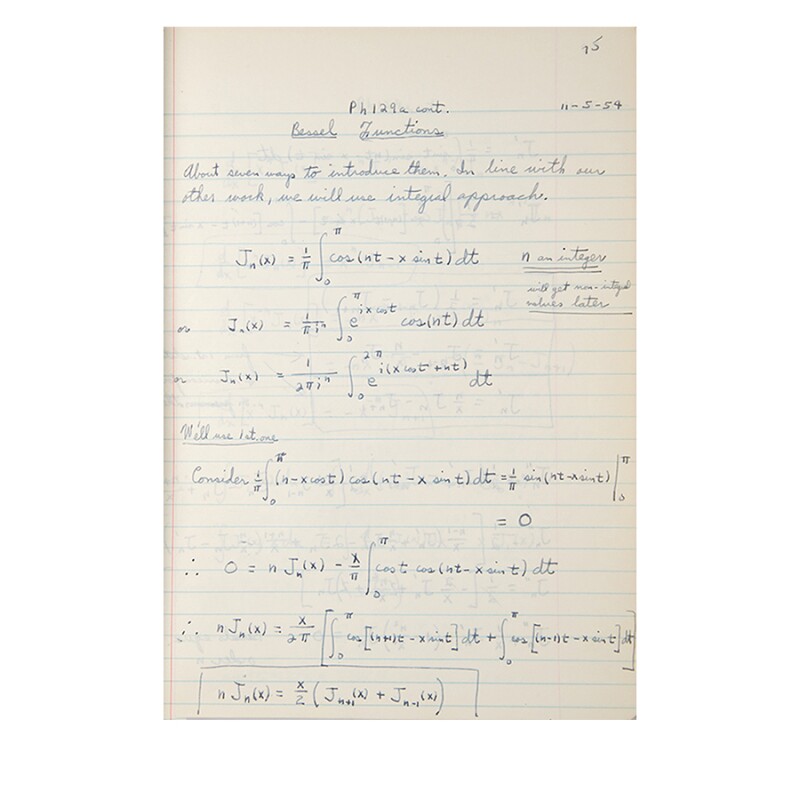 75
Ph129a cont. 11-5-54
Bessel Functions
About seven ways to introduce them. In line with our
other work, we will use integral approach.
Jₙ(x) = 1/π ∫₀^π cos(nt - x sin t) dt n an integer
will get non-integral
values later
or Jₙ(x) = 1/(π iⁿ) ∫₀^π e^(ix cos t) cos(nt) dt
or Jₙ(x) = 1/(2π iⁿ) ∫₀^(2π) e^(i(x cos t + nt)) dt
We'll use 1st one
Consider 1/π ∫₀^π (n - x cos t) cos(nt - x sin t) dt = 1/π sin(nt - x sin t) |₀^π
= 0
∴ 0 = n Jₙ(x) - x/π ∫₀^π cos t cos(nt - x sin t) dt
∴ n Jₙ(x) = x/2π [∫₀^π cos[(n+1)t - x sin t] dt + ∫₀^π cos[(n-1)t - x sin t] dt]
n Jₙ(x) = x/2 (Jₙ₊₁(x) + Jₙ₋₁(x))